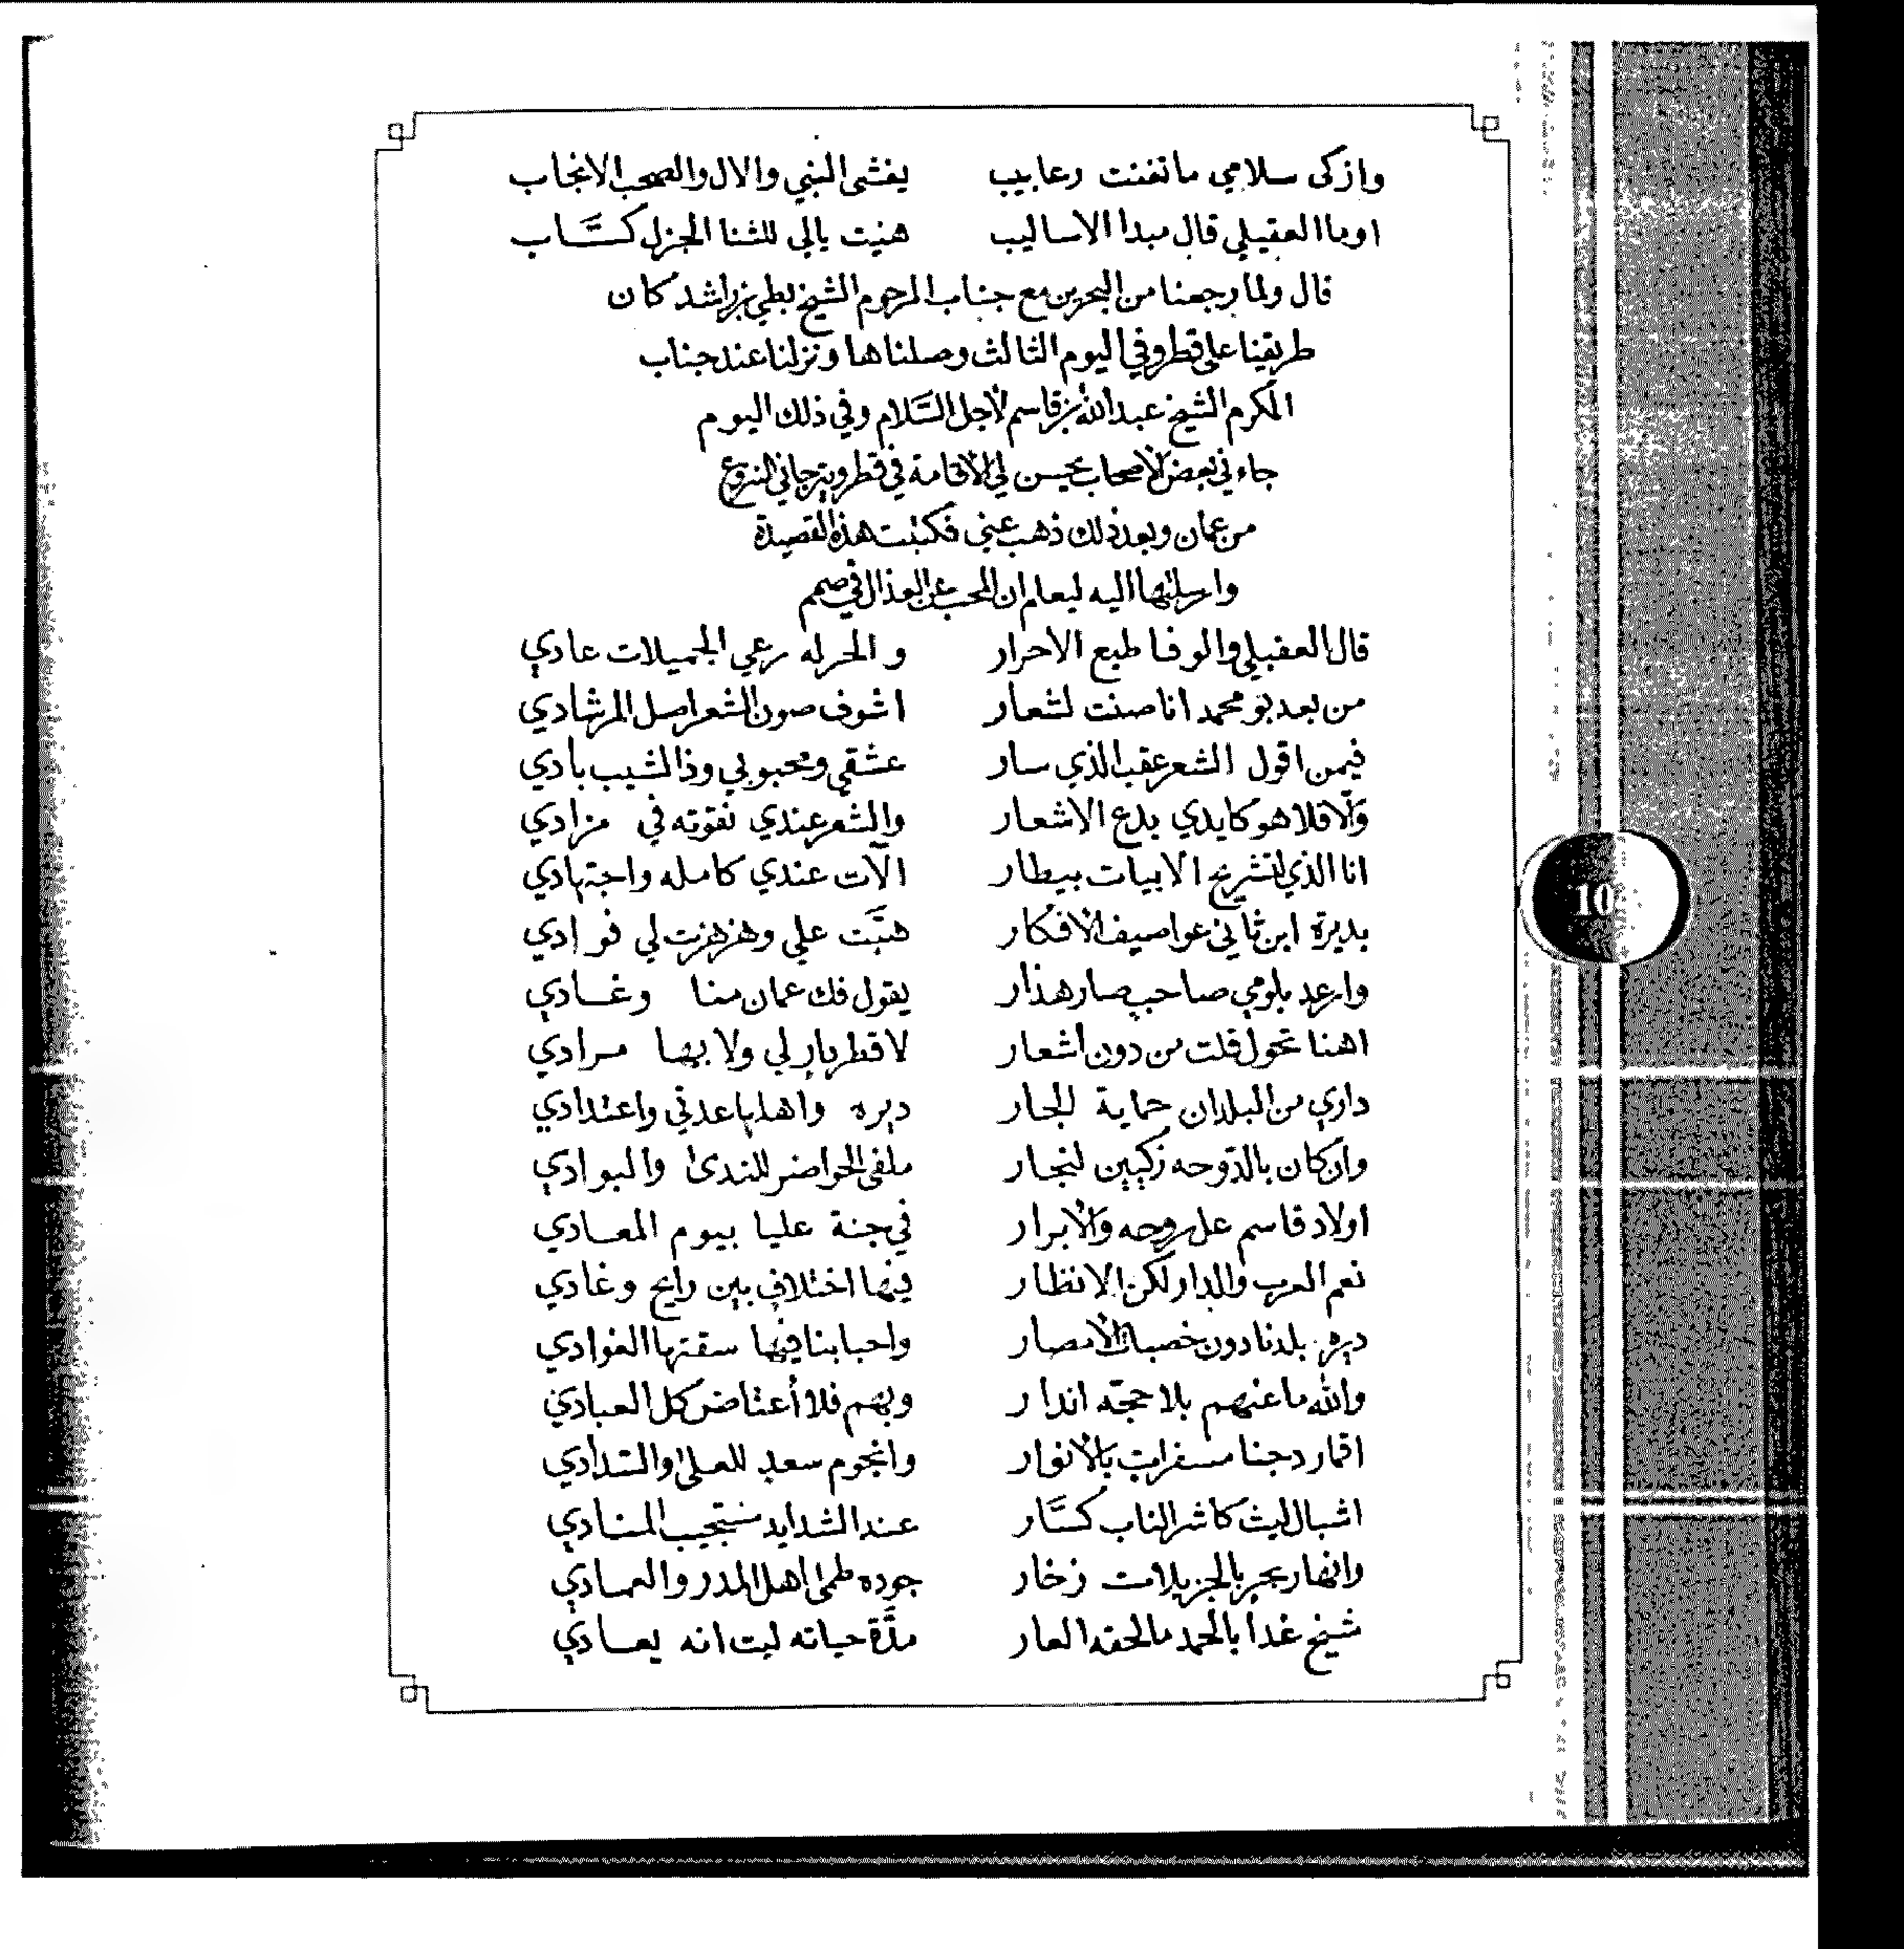 وازكى سلامي ماتغنت رعابيب يغشى النبي والال والصحب الانجاب
اوما العقيلي قال مبدا الاساليب هنيت يالي للثنا الجزل كسَّاب
قال ولما رجعنا من البحرين مع جناب المرحوم الشيخ بطي بن راشد كان
طريقنا على قطر وفي اليوم الثالث وصلناها ونزلنا عند جناب
المكرم الشيخ عبدالله بن قاسم لأجل السَّلام وفي ذلك اليوم
جاءني بعض الأصحاب يحسن لي الأقامة في قطر ويترجاني النزوع
من عمان وبعد ذلك ذهب عني فكتبت هذه القصيدة
وارسلتها اليه ليعلم ان المحب عن العذال في صمم
قال العقيلي والوفا طبع الاحرار والحر له رعي الجميلات عادي
من بعد بو محمد انا صنت لشعار اشوف صون الشعر اصل المرشادي
فيمن اقول الشعر عقب الذي سار عشقي ومحبوبي وذا الشيب بادي
وَلّا فلا هو كايدي بدع الاشعار والشعر عندي نقوته في مزادي
انا الذي لتشريح الابيات بيطار الآت عندي كامله واجتهادي
بديرة ابن ثاني عواصيف الافكار هبَّت علي وهزهزت لي فوادي
وارعد بلومي صاحب صار هذار يقول فك عمان منا وغادي
اهنا تحول قلت من دون أشعار لا قطر بار لي ولا بها مرادي
داري من البلدان حماية الجار ديره واهلها عدني واعتدادي
وان كان بالدّوحه زكيين لنجار ملفى الحواضر للندى والبوادي
اولاد قاسم عل روحه والأبرار في جنة عليا بيوم المعادي
نعم العرب والدار لكن الانظار فيها اختلافٍ بين رايح وغادي
ديرة بلدنا دون خصبات الأمصار واحبابنا فيها سقتها الغوادي
والله ماعنهم بلا حجّه اندار وبهم فلا أعتاض كل العبادي
اقمار دجنا مسفراتٍ بالأنوار وانجوم سعدٍ للعلى والسّدادي
اشبال ليث كاشر الناب كسَّار عند الشدايد نستجيب المنادي
وانهار بحر بالجزيلات زخار جوده طمى اهل المدر والعمادي
شيخ غدا بالحمد مالحقه العار مدَّة حياته ليت انه يعادي
10